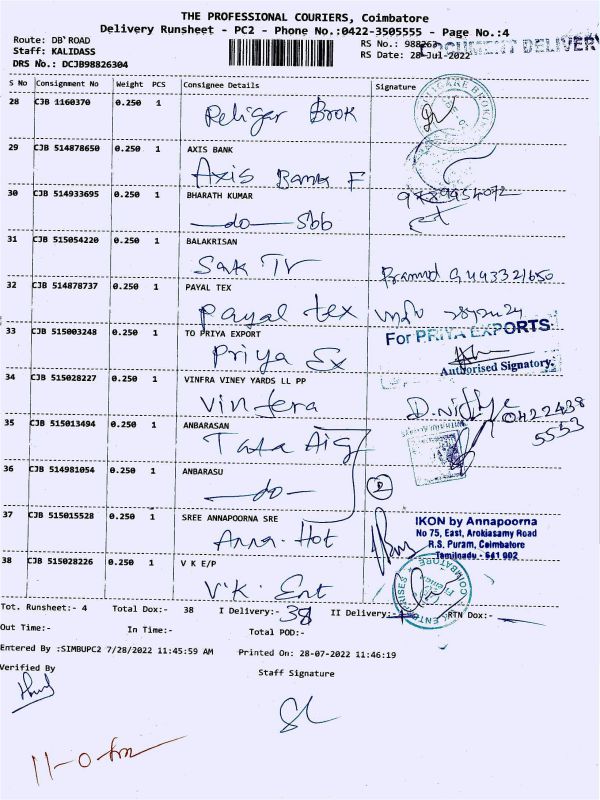 THE PROFESSIONAL COURIERS, Coimbatore
Delivery Runsheet - PC2 - Phone No.:0422-3505555 - Page No.:4
Route: DB`ROAD
Staff: KALIDASS
DRS No.: DCJB98826304
RS No.: 988263
DOCUMENT DELIVERY
RS Date: 28-Jul-2022
S No Consignment No Weight PCS Consignee Details Signature
28 CJB 1160370 0.250 1
Religar Brok
29 CJB 514878650 0.250 1 AXIS BANK
Axis Bank F
30 CJB 514933695 0.250 1 BHARATH KUMAR
do Sbb
31 CJB 515054220 0.250 1 BALAKRISAN
Sak TV
32 CJB 514878737 0.250 1 PAYAL TEX
Payal tex
33 CJB 515003248 0.250 1 TO PRIYA EXPORT
For PRIYA EXPORTS
Priya Ex
Authorised Signatory.
34 CJB 515028227 0.250 1 VINFRA VINEY YARDS LL PP
Vinfera
D. Nithya 0422438
5553
35 CJB 515013494 0.250 1 ANBARASAN
Tata Aig
36 CJB 514981054 0.250 1 ANBARASU
do
37 CJB 515015528 0.250 1 SREE ANNAPOORNA SRE
Anna. Hot
IKON by Annapoorna
No 75, East, Arokiasamy Road
R.S. Puram, Coimbatore
Tamilnadu - 641 002
38 CJB 515028226 0.250 1 V K E/P
V.K. Ent
Tot. Runsheet:- 4 Total Dox:- 38 I Delivery:- 38 II Delivery:- RTN Dox:-
Out Time:- In Time:- Total POD:-
Entered By :SIMBUPC2 7/28/2022 11:45:59 AM Printed On: 28-07-2022 11:46:19
Verified By Staff Signature